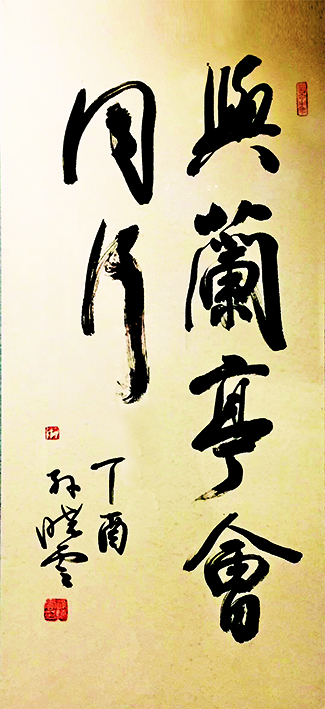 與蘭亭會
同行
丁酉
孙晓雲